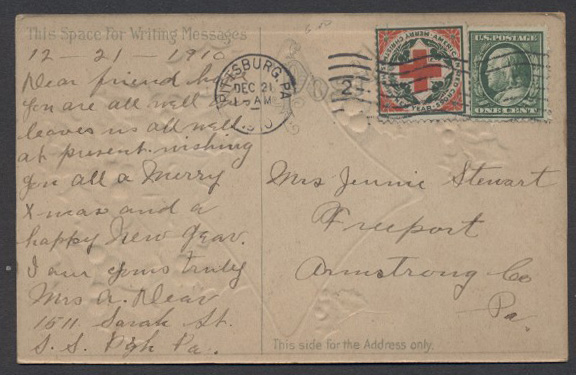 This Space For Writing Messages
12 - 21 - 1910
Dear friend
you are all well
leaves us all well
at present. wishing
you all a Merry
Xmas and a
happy New Year.
I am yours truly
Mrs A. Dear
1511 Sarah St.
S. S. Pgh Pa.
PITTSBURG, PA
DEC 21
AM
1910
2
AMERICAN
MERRY CHRISTMAS
YEAR
U.S. POSTAGE
ONE CENT
Mrs Jennie Stewart
Freeport
Armstrong Co
Pa.
This side for the Address only.